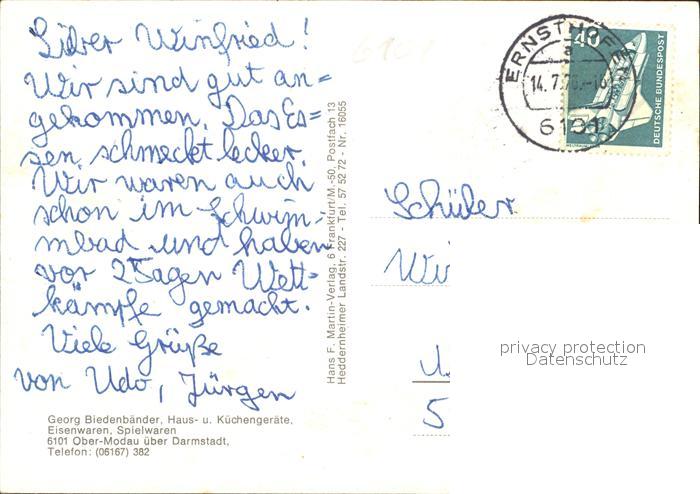 Lieber Winfried!
Wir sind gut an=
gekommen. Das Es=
sen schmeckt lecker.
Wir waren auch
schon im Schwim-
mbad und haben
vor 2 Tagen Wett=
kämpfe gemacht.
Viele Grüße
von Udo, Jürgen
Georg Biedenbänder, Haus- u. Küchengeräte,
Eisenwaren, Spielwaren
6101 Ober-Modau über Darmstadt,
Telefon: (06167) 382
Hans F. Martin-Verlag, 6 Frankfurt/M.-50, Postfach 13
Heddernheimer Landstr. 227 - Tel. 57 52 72 - Nr. 16055
ERNSTHOFEN
a
14.7.
6101
40
DEUTSCHE BUNDESPOST
Schüler
Wi
5
privacy protection
Datenschutz